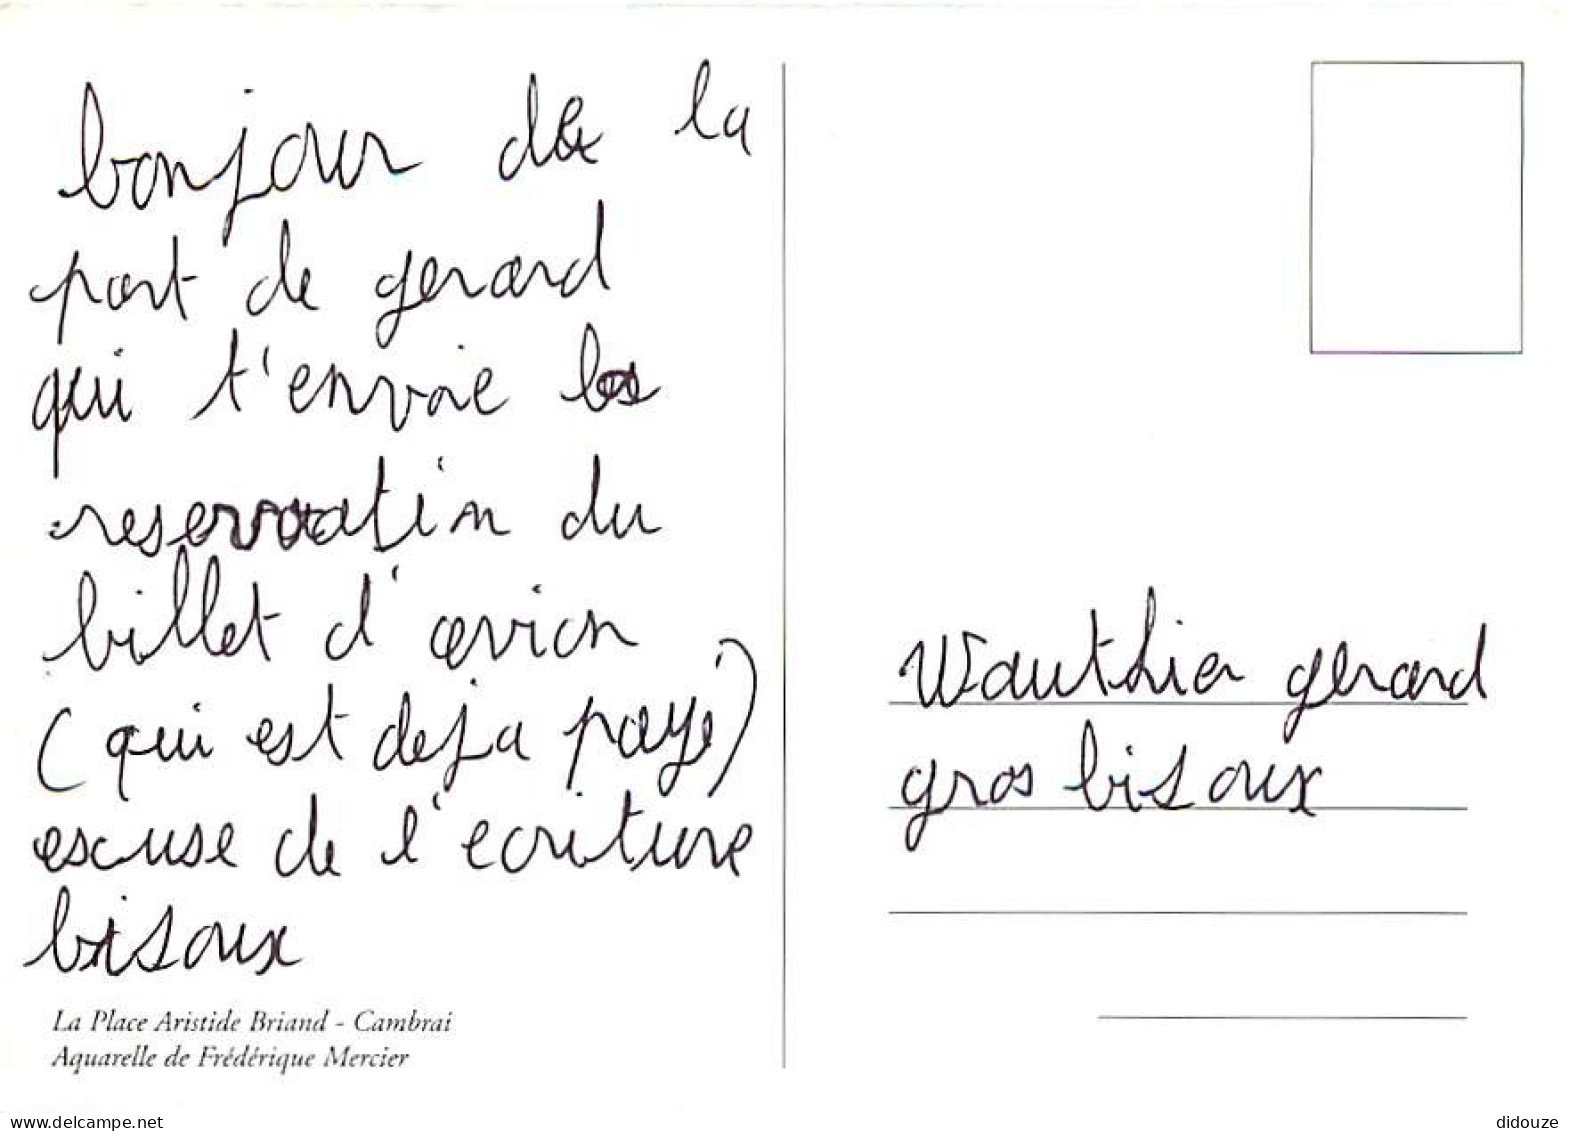 bonjour de la
part de gerard
qui t'envoie la
reservatin du
billet d'avion
(qui est deja payé)
escuse de l'ecriture
bisoux
La Place Aristide Briand - Cambrai
Aquarelle de Frédérique Mercier
Wauthier gerard
gros bisoux
www.delcampe.net
didouze